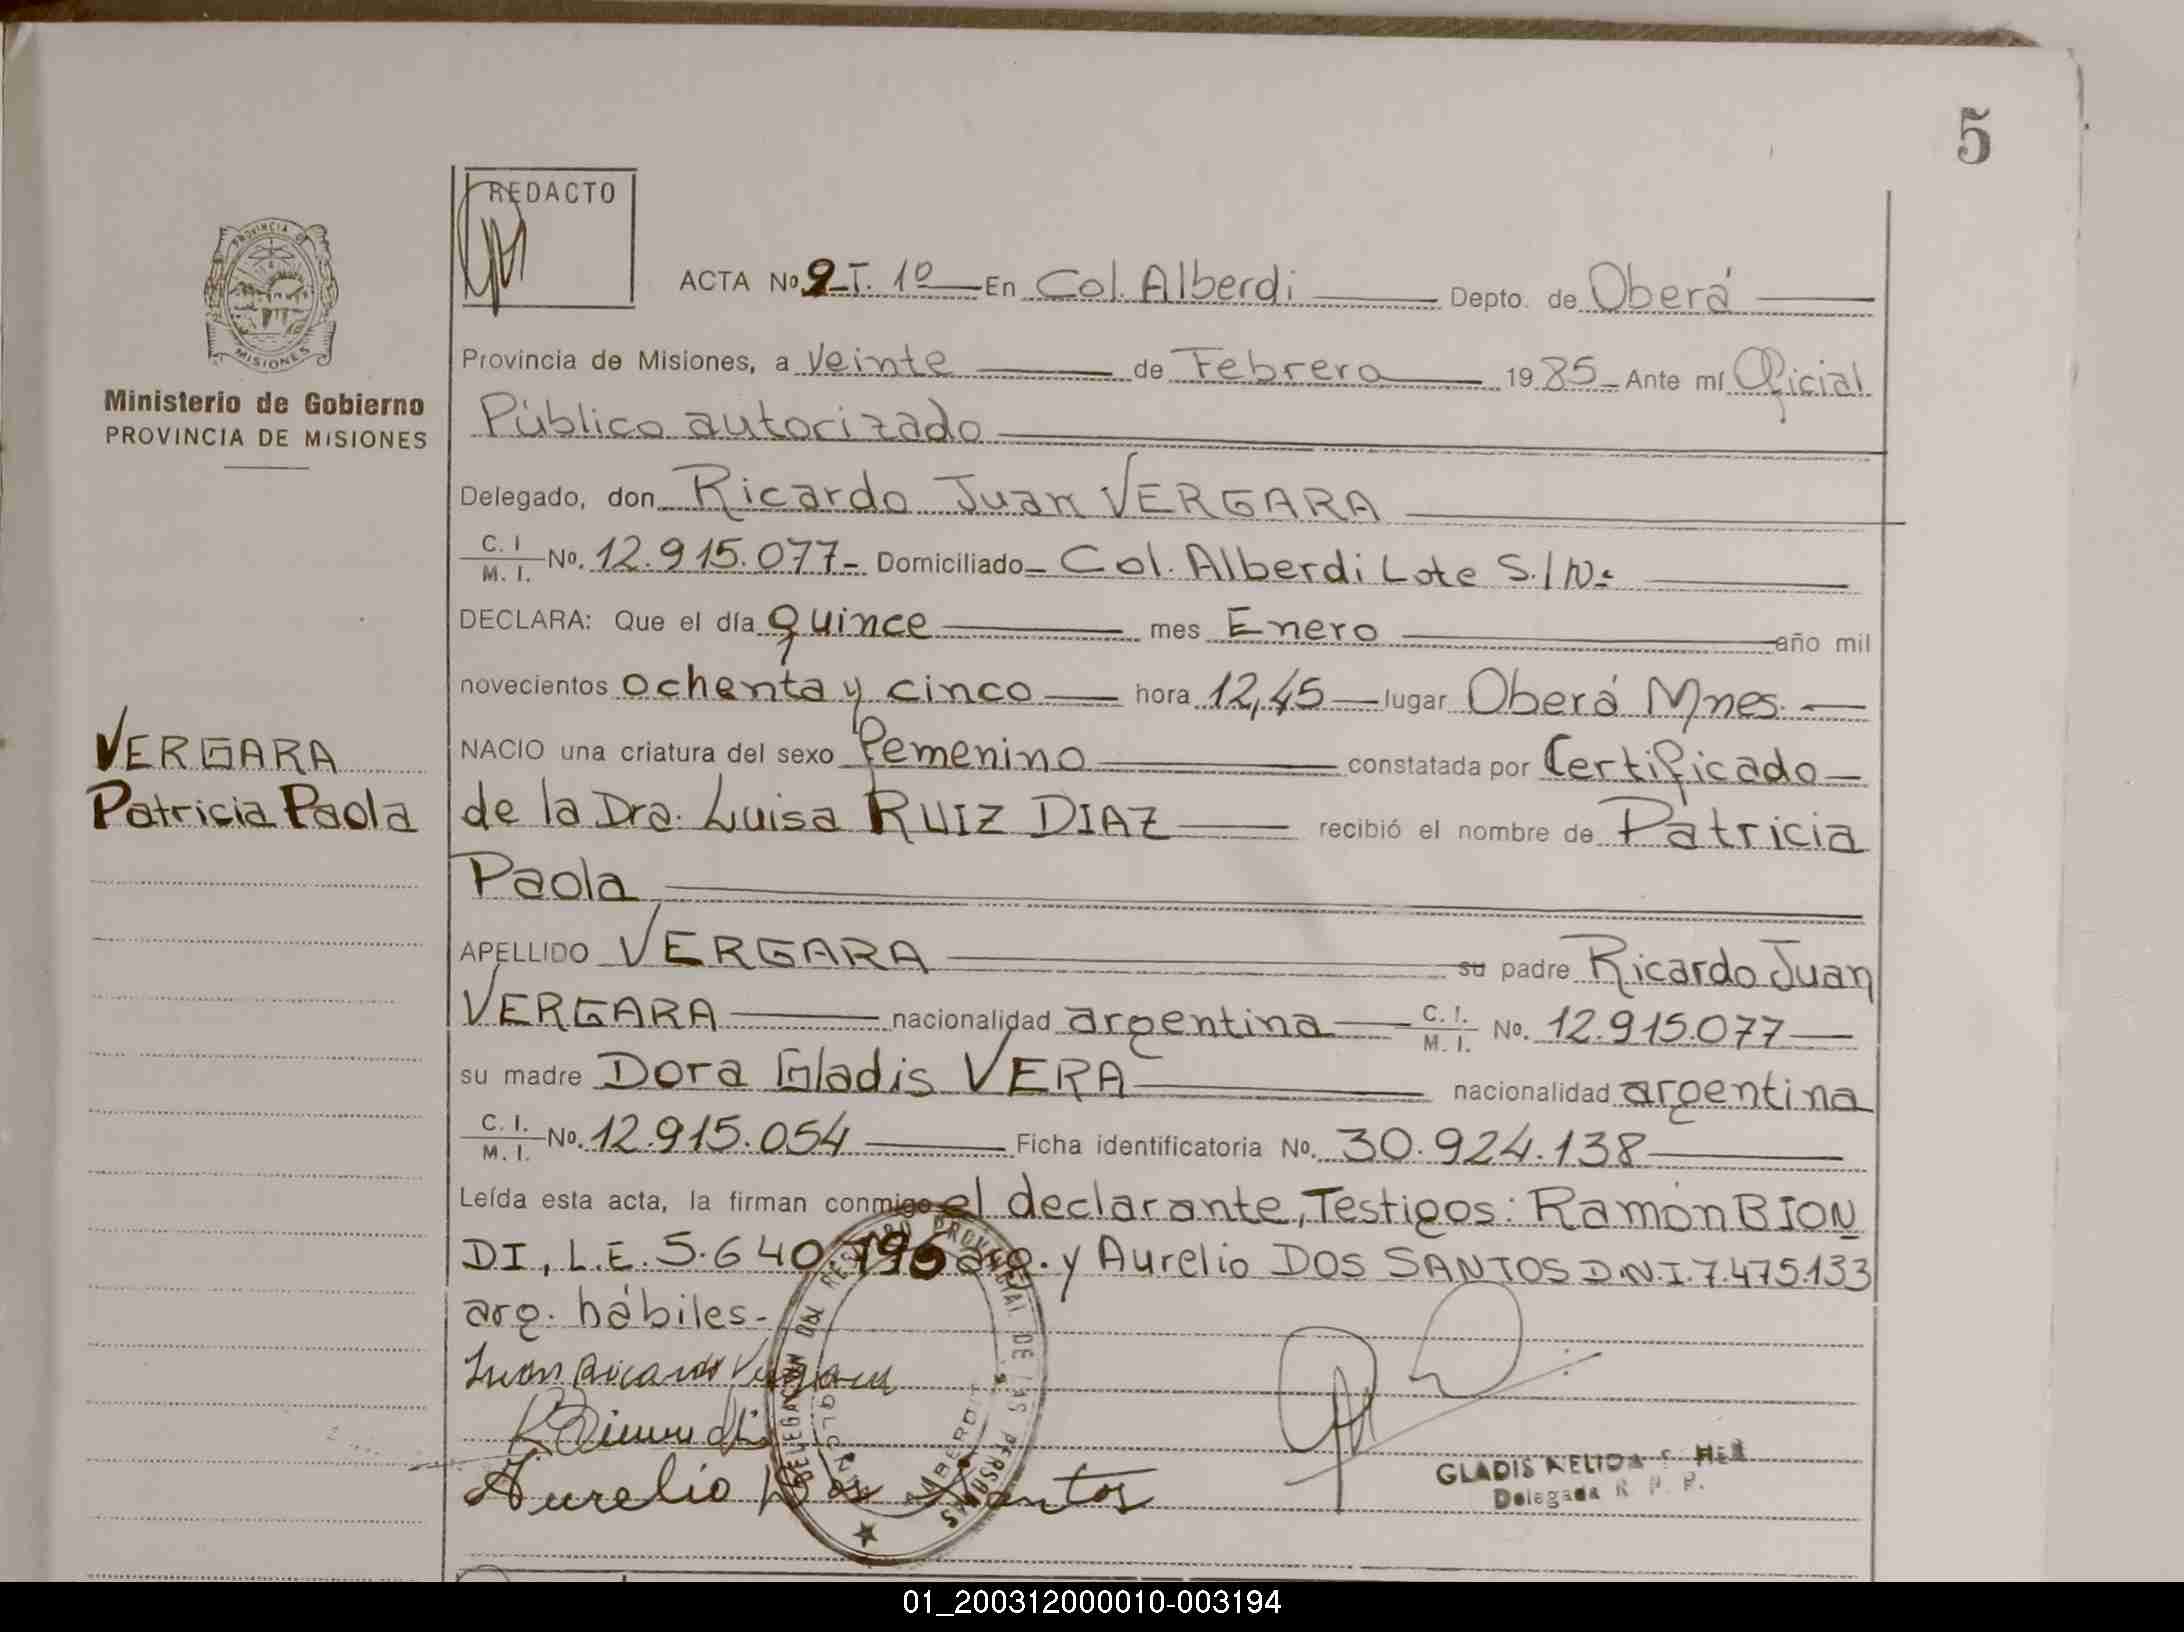 5
REDACTO
PROVINCIA D
MISIONES
Ministerio de Gobierno
PROVINCIA DE MISIONES
ACTA Nº 9 T. 1º En Col. Alberdi Depto. de Oberá
Provincia de Misiones, a Veinte de Febrero 1985 Ante mí Oficial
Público autorizado
Delegado, don Ricardo Juan VERGARA
C. I. M. I. No. 12.915.077- Domiciliado Col. Alberdi Lote S/Nº
DECLARA: Que el día quince mes Enero año mil
novecientos ochenta y cinco hora 12,45 lugar Oberá Mnes.
NACIO una criatura del sexo femenino constatada por Certificado
VERGARA
Patricia Paola
de la Dra. Luisa RUIZ DIAZ recibió el nombre de Patricia
Paola
APELLIDO VERGARA su padre Ricardo Juan
VERGARA nacionalidad argentina C. I. M. I. No. 12.915.077
su madre Dora Gladis VERA nacionalidad argentina
C. I. M. I. No. 12.915.054 Ficha identificatoria No. 30.924.138
Leída esta acta, la firman conmigo el declarante, Testigos: Ramón BION
DI, L.E. 5.640.796 arg. y Aurelio DOS SANTOS D.N.I. 7.475.133
arg. hábiles.-
Juan Ricardo Vergara
Aurelio Dos Santos
DELEGACION DEL REGISTRO PROVINCIAL DE LAS PERSONAS
COLONIA ALBERDI
GLADIS NELIDA
Delegada R. P. P.
01_200312000010-003194